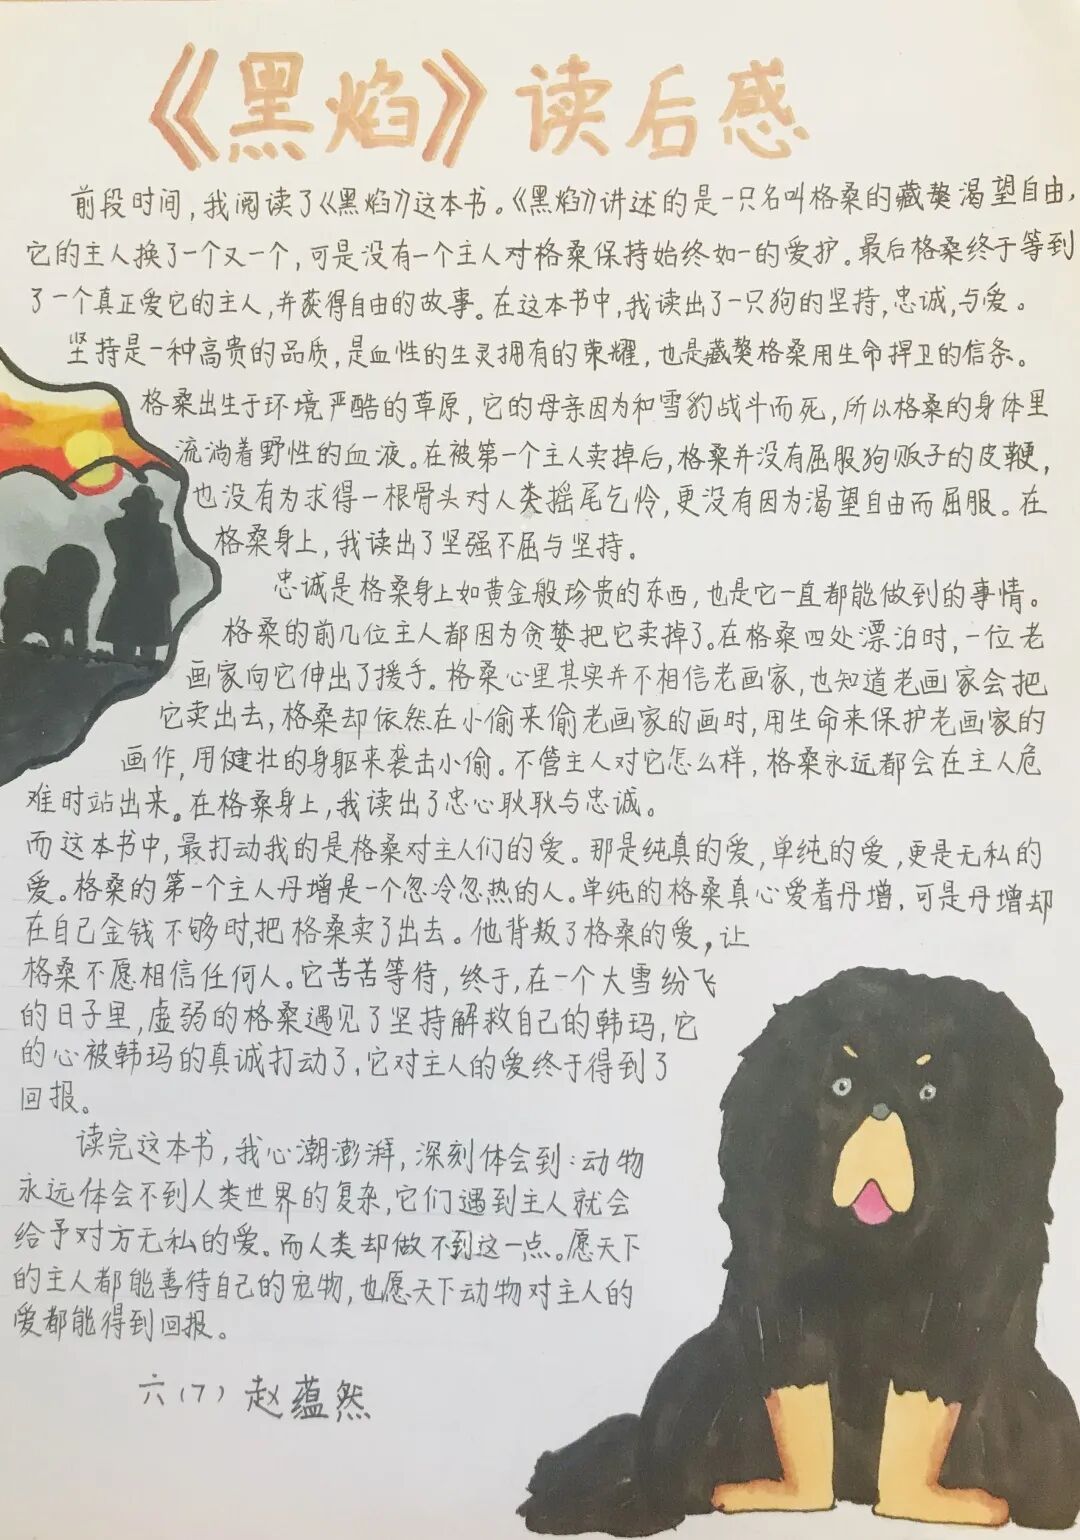 《黑焰》读后感
前段时间,我阅读了《黑焰》这本书。《黑焰》讲述的是一只名叫格桑的藏獒渴望自由,
它的主人换了一个又一个,可是没有一个主人对格桑保持始终如一的爱护。最后格桑终于等到
了一个真正爱它的主人,并获得自由的故事。在这本书中,我读出了一只狗的坚持,忠诚,与爱。
坚持是一种高贵的品质,是血性的生灵拥有的荣耀,也是藏獒格桑用生命捍卫的信条。
格桑出生于环境严酷的草原,它的母亲因为和雪豹战斗而死,所以格桑的身体里
流淌着野性的血液。在被第一个主人卖掉后,格桑并没有屈服狗贩子的皮鞭,
也没有为求得一根骨头对人类摇尾乞怜,更没有因为渴望自由而屈服。在
格桑身上,我读出了坚强不屈与坚持。
忠诚是格桑身上如黄金般珍贵的东西,也是它一直都能做到的事情。
格桑的前几位主人都因为贪婪把它卖掉了。在格桑四处漂泊时,一位老
画家向它伸出了援手。格桑心里其实并不相信老画家,也知道老画家会把
它卖出去,格桑却依然在小偷来偷老画家的画时,用生命来保护老画家的
画作,用健壮的身躯来袭击小偷。不管主人对它怎么样,格桑永远都会在主人危
难时站出来。在格桑身上,我读出了忠心耿耿与忠诚。
而这本书中,最打动我的是格桑对主人们的爱。那是纯真的爱,单纯的爱,更是无私的
爱。格桑的第一个主人丹增是一个忽冷忽热的人。单纯的格桑真心爱着丹增,可是丹增却
在自己金钱不够时,把格桑卖了出去。他背叛了格桑的爱,让
格桑不愿相信任何人。它苦苦等待,终于,在一个大雪纷飞
的日子里,虚弱的格桑遇见了坚持解救自己的韩玛,它
的心被韩玛的真诚打动了,它对主人的爱终于得到了
回报。
读完这本书,我心潮澎湃,深刻体会到:动物
永远体会不到人类世界的复杂,它们遇到主人就会
给予对方无私的爱。而人类却做不到这一点。愿天下
的主人都能善待自己的宠物,也愿天下动物对主人的
爱都能得到回报。
六(7) 赵蕴然